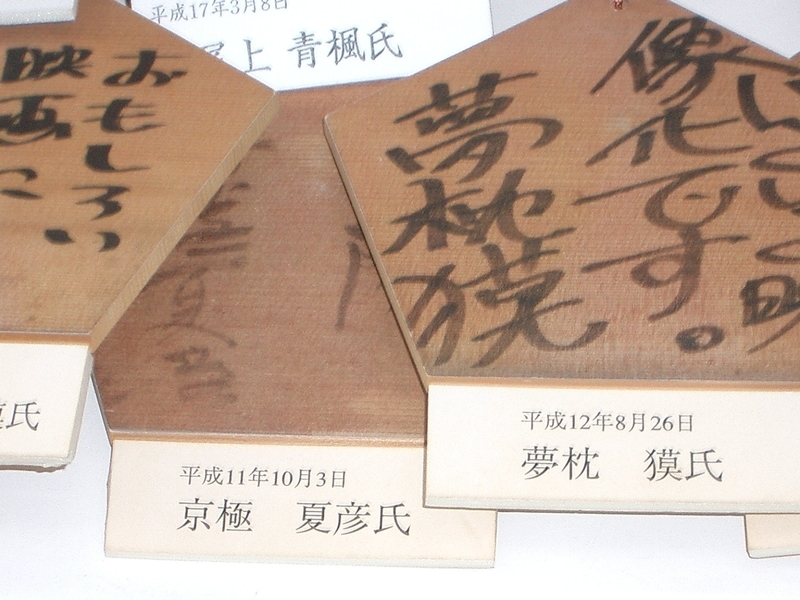 平成17年3月8日
尾上 青楓氏
おもしろい
映画に
像化です。
夢枕獏
夏彦
獏氏
平成11年10月3日
京極 夏彦氏
平成12年8月26日
夢枕 獏氏